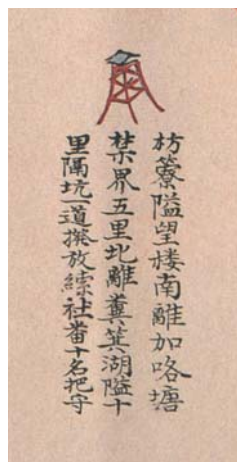 枋簝隘望楼南離加咯塘
禁界五里北離糞箕湖隘十
里隔坑一道撥放縤社番十名把守